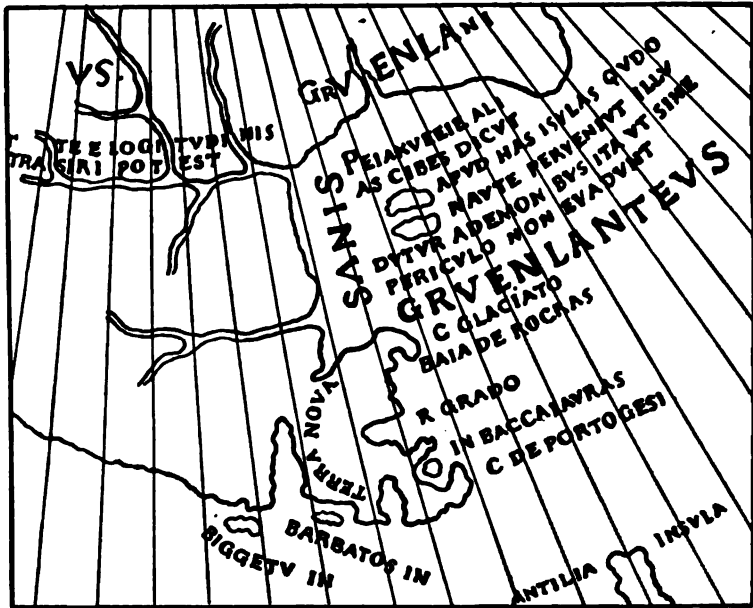 VS.
GRVENLANI
T TE E LOGI TVDI NIS
TRA SFRI POT EST
SANIS
PEIANVEEIE ALI
AS CIBES DICVT
APVD HAS ISVLAS QVDO
NAVTE PERVENIVT ILLV
DVTVR ADEMON BVS ITA VT SINE
PERICVLO NON EVADVNT
GRVENLANTEVS
C GLACIATO
BAIA DE ROCHAS
R GRADO
IN BACCALAVRAS
C DE PORTOGESI
TERRA NOVA
BARBATOS IN
BIGGETV IN
ANTILIA INSVLA